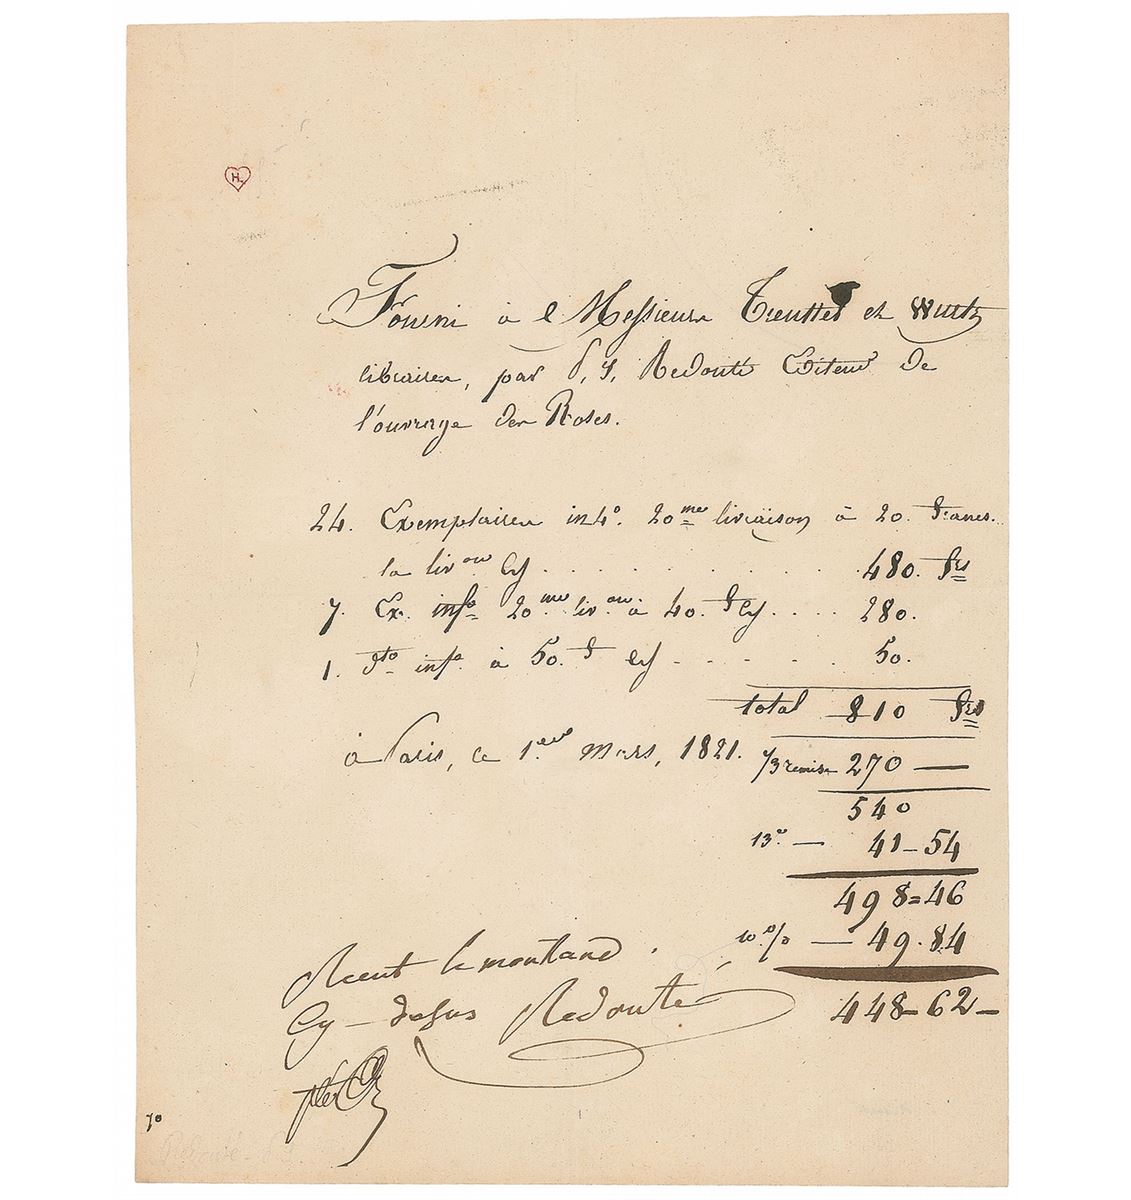 HL
Fourni à Messieurs Treuttel et Wurtz
libraires, par P. J. Redouté Editeur de
l'ouvrage des Roses.
24. Exemplaires in 4°. 20me livraison à 20. francs.
la livon Cy . . . . . . . 480. frs
7. Ex. info 20me livon à 40. f Cy . . . . 280.
1. dto info à 50. f Cy - - - . . . 50.
total 810 frs
à Paris, ce 1er mars, 1821.
1/3 remise 270 —
540
13e — 41-54
498=46
10 % — 49.84
448-62-
Reçut le montand
Cy-desus Redouté
70